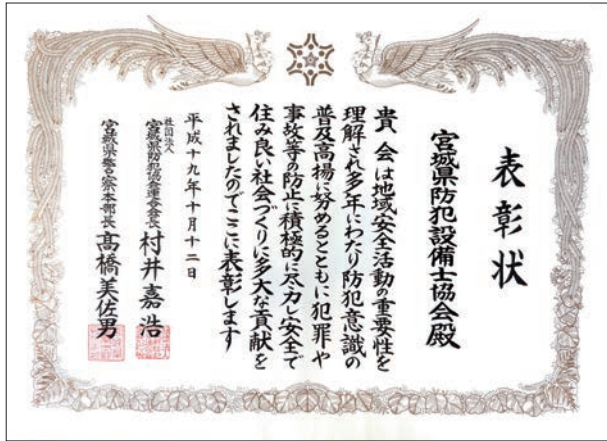 表彰状
宮城県防犯設備士協会殿
貴会は地域安全活動の重要性を
理解され多年にわたり防犯意識の
普及高揚に努めるとともに犯罪や
事故等の防止に積極的に尽力し安全で
住み良い社会づくりに多大な貢献を
されましたのでここに表彰します
平成十九年十月十二日
社団法人
宮城県防犯協会連合会会長 村井嘉浩
宮城県警察本部長 髙橋美佐男